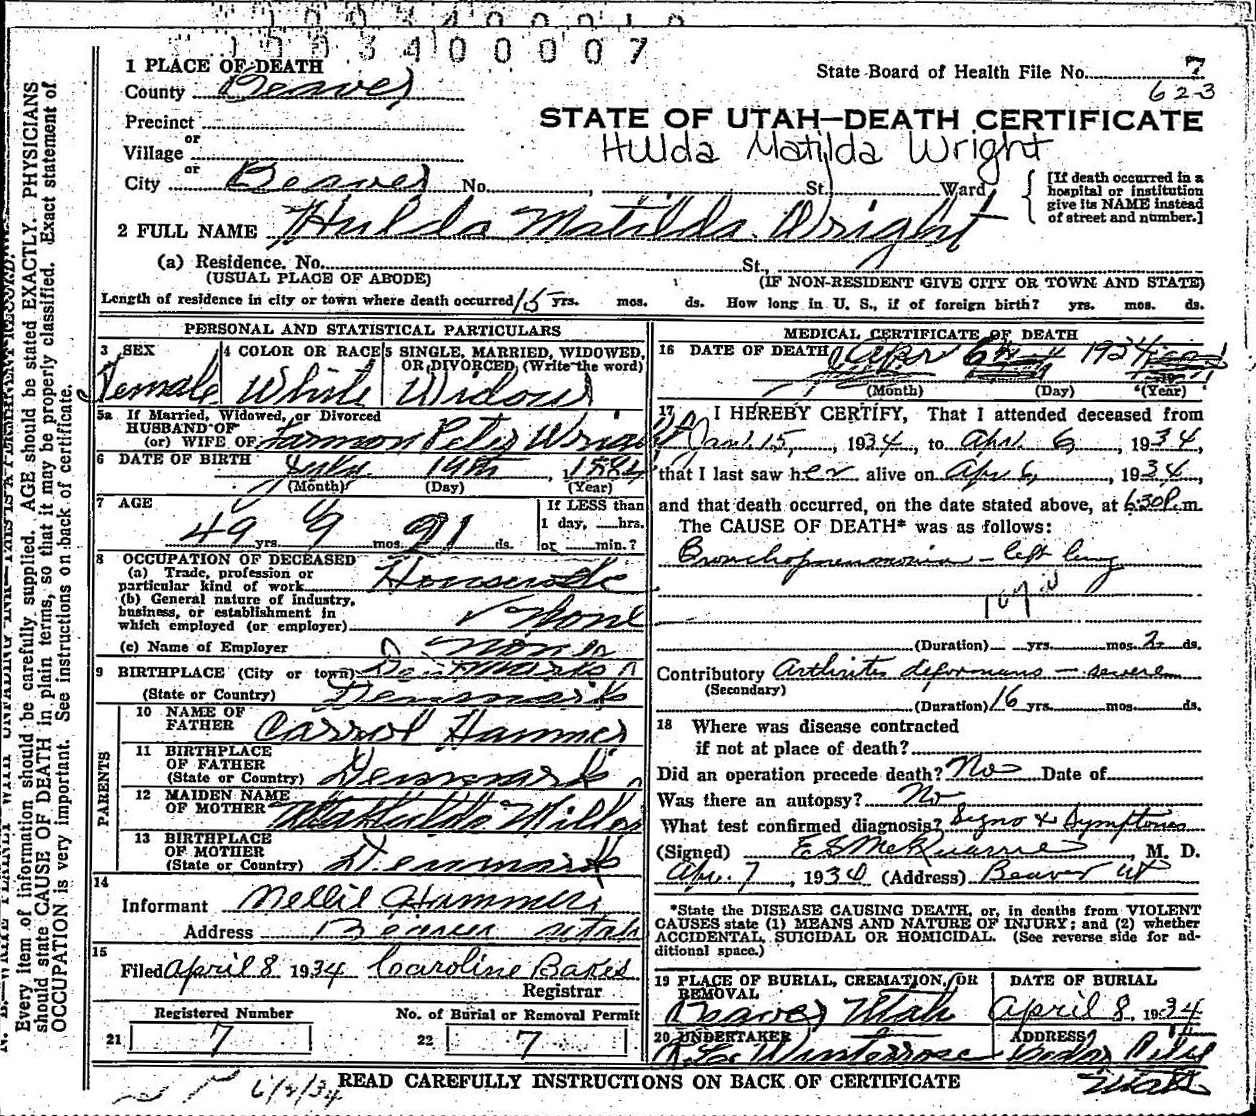 1003400007
1 PLACE OF DEATH
State Board of Health File No. 7
County Beaver
623
Precinct
STATE OF UTAH—DEATH CERTIFICATE
or
Village
Hulda Matilda Wright
or
City Beaver No. , St. Ward
[If death occurred in a
hospital or institution
give its NAME instead
of street and number.]
2 FULL NAME Hulda Matilda Wright
(a) Residence. No. St.,
(USUAL PLACE OF ABODE) (IF NON-RESIDENT GIVE CITY OR TOWN AND STATE)
Length of residence in city or town where death occurred 15 yrs. mos. ds. How long in U. S., if of foreign birth? yrs. mos. ds.
PERSONAL AND STATISTICAL PARTICULARS
3 SEX 4 COLOR OR RACE 5 SINGLE, MARRIED, WIDOWED,
OR DIVORCED, (Write the word)
Female White Widow
5a If Married, Widowed, or Divorced
HUSBAND OF
(or) WIFE OF Larmon Peter Wright
6 DATE OF BIRTH July 19th, 1884
(Month) (Day) (Year)
7 AGE If LESS than
49 yrs. mos. ds. 1 day, hrs.
or min.?
8 OCCUPATION OF DECEASED
(a) Trade, profession or
particular kind of work Housewife
(b) General nature of industry,
business, or establishment in
which employed (or employer) None
(c) Name of Employer None
9 BIRTHPLACE (City or town) Denmark
(State or Country) Denmark
PARENTS
10 NAME OF
FATHER Carrol Hammer
11 BIRTHPLACE
OF FATHER
(State or Country) Denmark
12 MAIDEN NAME
OF MOTHER Miller
13 BIRTHPLACE
OF MOTHER
(State or Country) Denmark
14
Informant Nellie Hammer
Address Beaver Utah
15
Filed April 8 1934 Caroline Bakes
Registrar
Registered Number No. of Burial or Removal Permit
21 7 22 7
MEDICAL CERTIFICATE OF DEATH
16 DATE OF DEATH Apr 6th 1934
(Month) (Day) (Year)
17 I HEREBY CERTIFY, That I attended deceased from
Jan. 15, 1934, to Apr. 6, 1934,
that I last saw her alive on Apr 6, 1934,
and that death occurred, on the date stated above, at 6:30 P. m.
The CAUSE OF DEATH* was as follows:
Bronchopneumonia – left lung
(Duration) yrs. mos. 2 ds.
Contributory Arthritis deformans – severe
(Secondary)
(Duration) 16 yrs. mos. ds.
18 Where was disease contracted
if not at place of death?
Did an operation precede death? No Date of
Was there an autopsy? No
What test confirmed diagnosis? Signs & Symptoms
(Signed) E S McQuarrie, M. D.
Apr. 7, 1934 (Address) Beaver Ut
*State the DISEASE CAUSING DEATH, or, in deaths from VIOLENT
CAUSES state (1) MEANS AND NATURE OF INJURY; and (2) whether
ACCIDENTAL, SUICIDAL OR HOMICIDAL. (See reverse side for ad-
ditional space.)
19 PLACE OF BURIAL, CREMATION, OR DATE OF BURIAL
REMOVAL
Beaver Utah April 8, 1934
20 UNDERTAKER ADDRESS
Winterrose Cedar City
Utah
6/4/34 READ CAREFULLY INSTRUCTIONS ON BACK OF CERTIFICATE
Every item of information should be carefully supplied. AGE should be stated EXACTLY. PHYSICIANS
should state CAUSE OF DEATH in plain terms, so that it may be properly classified. Exact statement of
OCCUPATION is very important. See instructions on back of certificate.